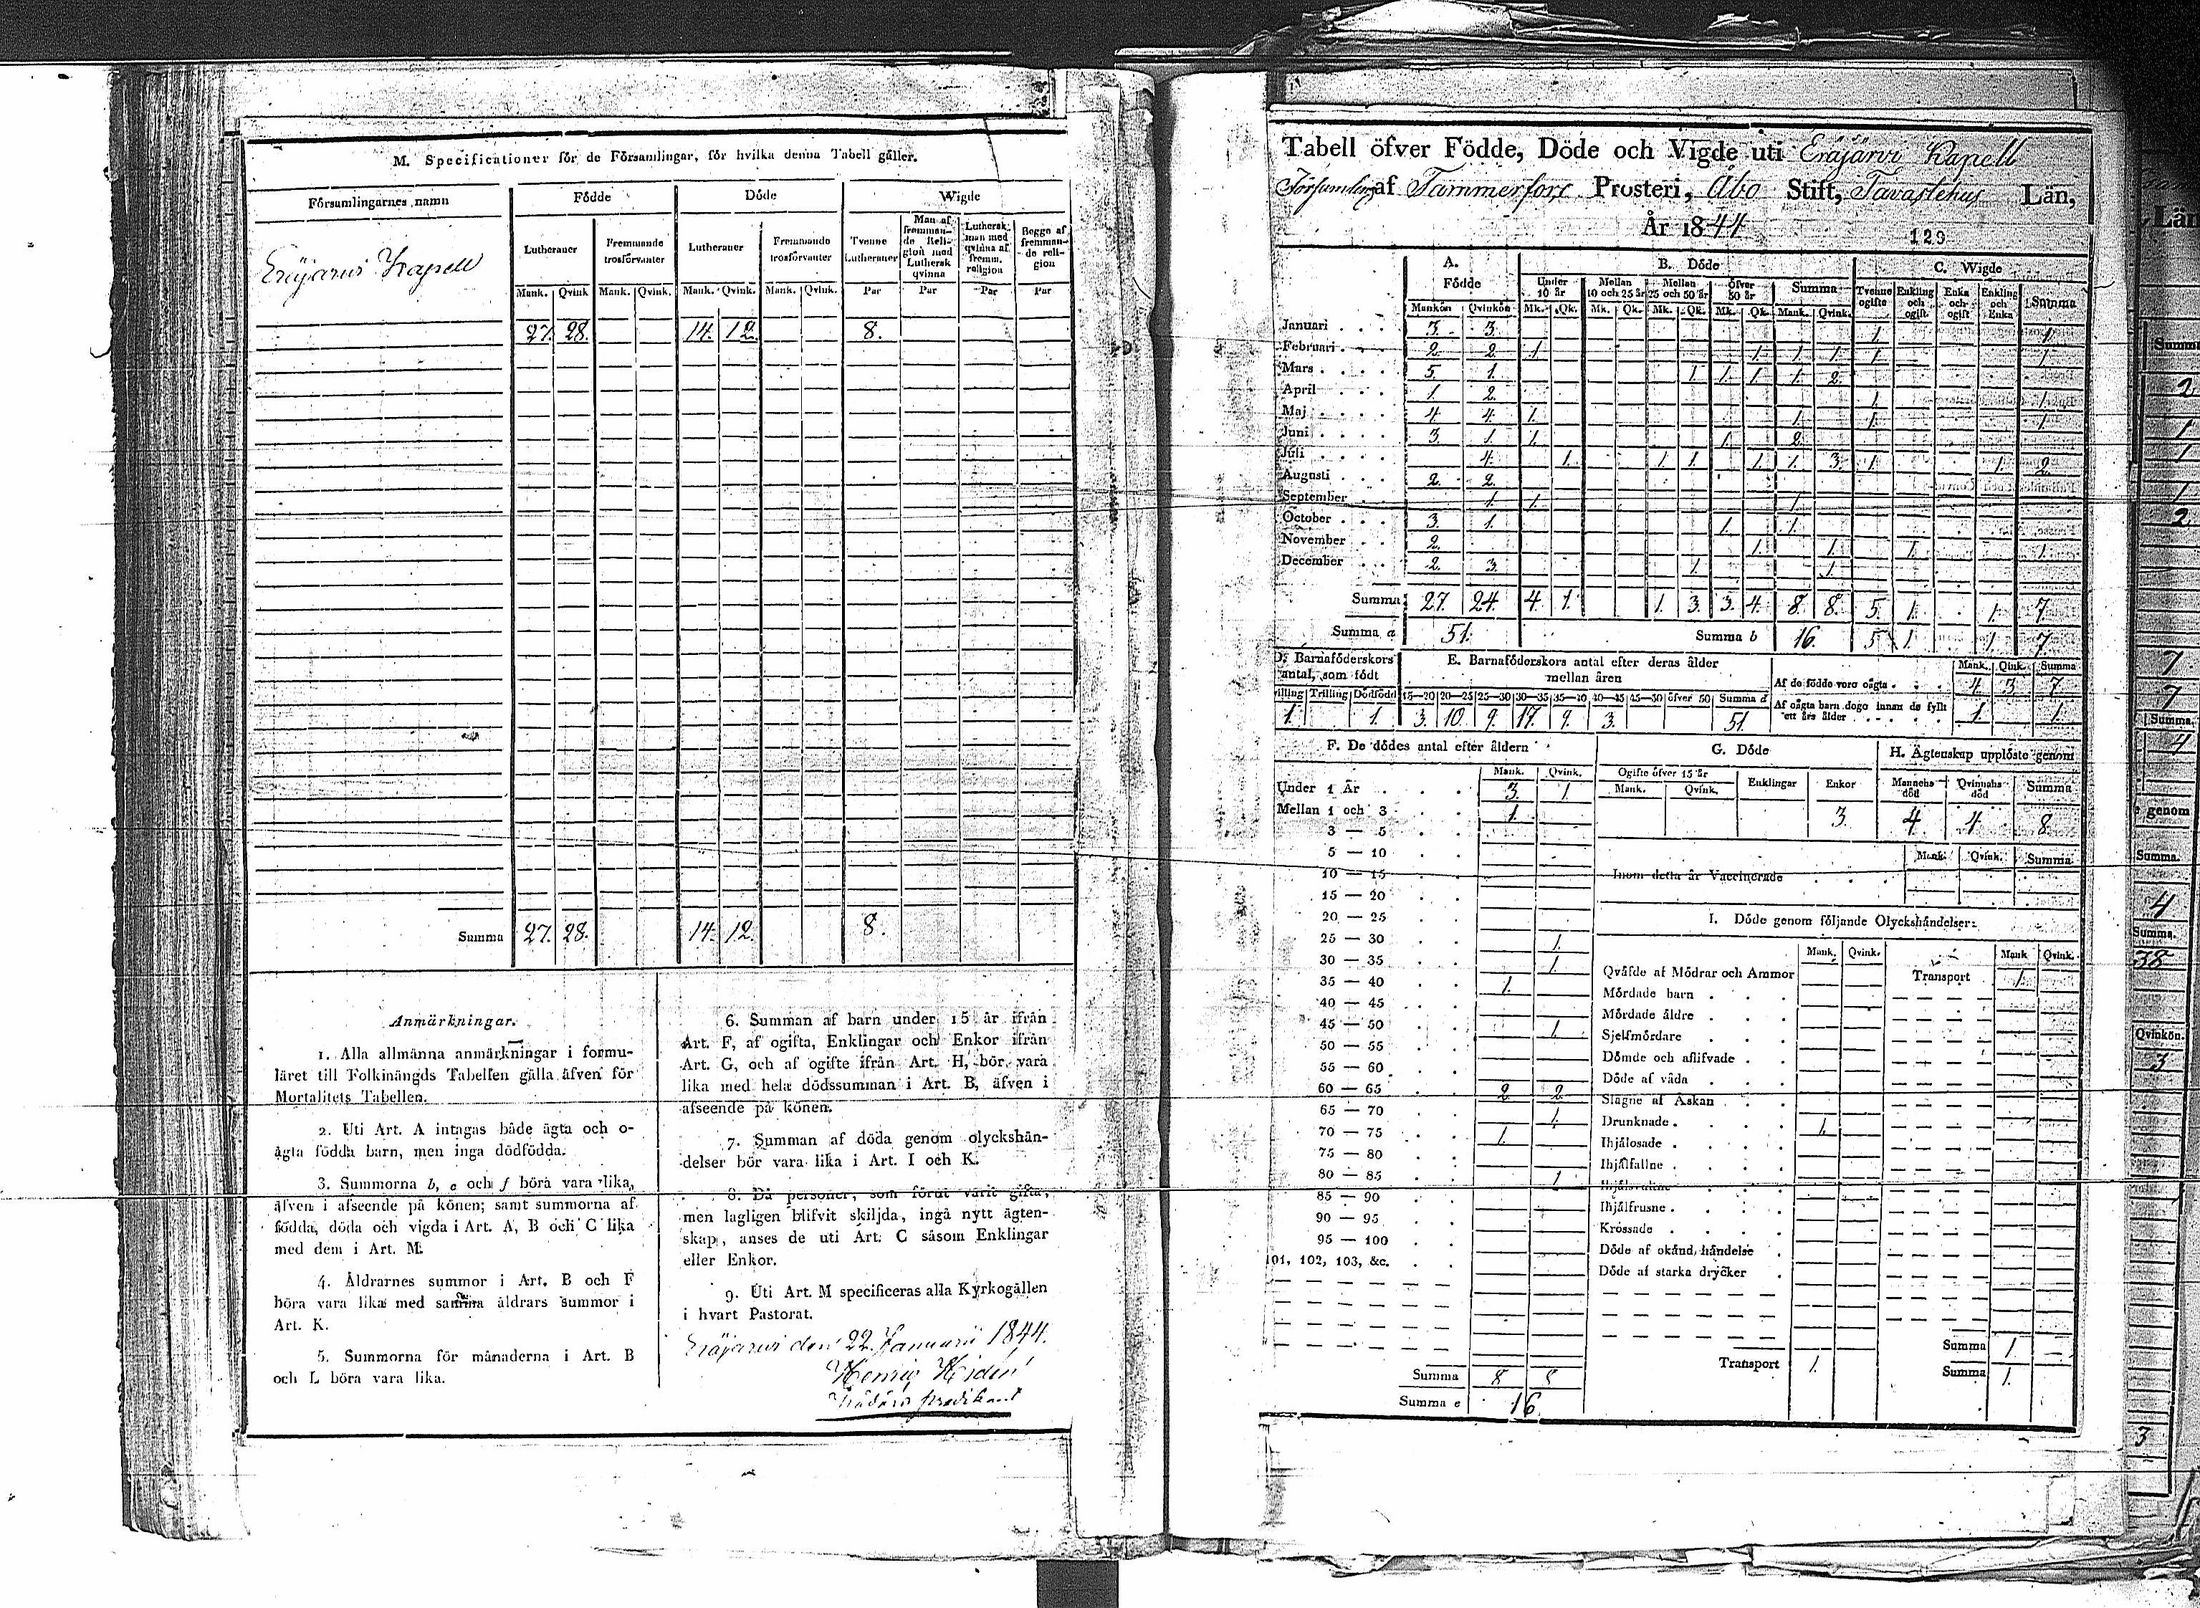 M. Specificationer för de Församlingar, för hvilka denna Tabell gäller.
Församlingarnes namn
Födde
Döde
Wigde
Lutheraner
Fremmande trosförvanter
Lutheraner
Fremmande trosförvanter
Tvenne Lutheraner
Man af fremmande Religion med Luthersk qvinna
Luthersk man med qvinna af fremm. religion
Begge af fremmande religion
Mank. Qvink Mank. Qvink. Mank. Qvink. Mank. Qvink. Par Par Par Par
Eräjärvi Kapell
27. 28. 14. 12. 8.
Summa 27. 28. 14. 12. 8.
Anmärkningar.
1. Alla allmänna anmärkningar i formu-
läret till Folkmängds Tabellen gälla äfven för
Mortalitets Tabellen.
2. Uti Art. A intagas både ägta och o-
ägta födda barn, men inga dödfödda.
3. Summorna b, e och f böra vara lika,
äfven i afseende på könen; samt summorna af
födda, döda och vigda i Art. A, B och C lika
med dem i Art. M.
4. Åldrarnes summor i Art. B och F
böra vara lika med samma åldrars summor i
Art. K.
5. Summorna för månaderna i Art. B
och L böra vara lika.
6. Summan af barn under 15 år ifrån
Art. F, af ogifta, Enklingar och Enkor ifrån
Art. G, och af ogifte ifrån Art. H, bör vara
lika med hela dödssumman i Art. B, äfven i
afseende på könen.
7. Summan af döda genom olyckshän-
delser bör vara lika i Art. I och K.
8. Då personer, som förut varit gifta,
men lagligen blifvit skiljda, ingå nytt ägten-
skap, anses de uti Art. C såsom Enklingar
eller Enkor.
9. Uti Art. M specificeras alla Kyrkogällen
i hvart Pastorat.
Eräjärvi den 22 Januarii 1844.
Henric
Tabell öfver Födde, Döde och Vigde uti Eräjärvi Kapell
Församling af Tammerfors Prosteri, Åbo Stift, Tavastehus Län,
År 1844
129
A. Födde
B. Döde
C. Wigde
Under 10 år
Mellan 10 och 25 år
Mellan 25 och 50 år
Öfver 50 år
Summa
Tvenne ogifte
Enkling och ogift
Enka och ogift
Enkling och Enka
Summa
Mankön Qvinkön Mk. Qk. Mk. Qk. Mk. Qk. Mk. Qk. Mank. Qvink.
Januari 3. 3. 1. 1.
Februari 2. 2. 1. 1. 1. 1. 1. 1.
Mars 5. 1. 1. 1. 1. 1. 2.
April 1. 2. 1. 1.
Maj 4. 4. 1. 1. 1. 1.
Juni 3. 1. 1. 1. 2.
Juli 4. 1. 1. 1. 1. 1. 3. 1. 1. 2.
Augusti 2. 2.
September 1. 1. 1.
October 3. 1. 1. 1.
November 2. 1. 1. 1. 1.
December 2. 3. 1. 1.
Summa 27. 24. 4. 1. 1. 3. 3. 4. 8. 8. 5. 1. 1. 7.
Summa a 51. Summa b 16. 5 1 1 7.
D. Barnaföderskors antal, som födt
E. Barnaföderskors antal efter deras ålder mellan åren
Mank. Qink. Summa
Trilling Dödfödd 15—20 20—25 25—30 30—35 35—40 40—45 45—50 öfver 50 Summa d
1. 1. 3. 10. 9. 17. 9. 3. 51.
Af de födde voro oägta 4. 3. 7.
Af oägta barn dogo innan de fyllt ett års ålder 1. 1.
F. De dödes antal efter åldern
Mank. Qvink.
Under 1 År 3. 1.
Mellan 1 och 3 1.
3 — 5
5 — 10
10 — 15
15 — 20
20 — 25
25 — 30 1.
30 — 35 1.
35 — 40 1.
40 — 45
45 — 50 1.
50 — 55
55 — 60
60 — 65 2 2.
65 — 70 1.
70 — 75 1.
75 — 80
80 — 85 1.
85 — 90
90 — 95
95 — 100
101, 102, 103, &c.
Summa 8 8
Summa e 16
G. Döde
Ogifte öfver 15 år
Mank. Qvink.
Enklingar
Enkor
3.
H. Ägtenskap upplöste genom
Mannens död
Qvinnans död
Summa
4. 4. 8.
Mank. Qvink. Summa
Inom detta år Vaccinerade
I. Döde genom följande Olyckshändelser:
Mank. Qvink. Mank Qvink.
Qväfde af Mödrar och Ammor
Transport 1.
Mördade barn
Mördade äldre
Sjelfmördare
Dömde och aflifvade
Döde af våda
Slagne af Åskan
Drunknade 1.
Ihjälosade
Ihjälfallne
Ihjälfrusne
Krossade
Döde af okänd händelse
Döde af starka drycker
Summa 1.
Transport 1. Summa 1.
Län
Summa
2
1
1
1
2
7
7
Summa.
4
genom
Summa.
4
Summa.
38
Qvinkön.
3
3